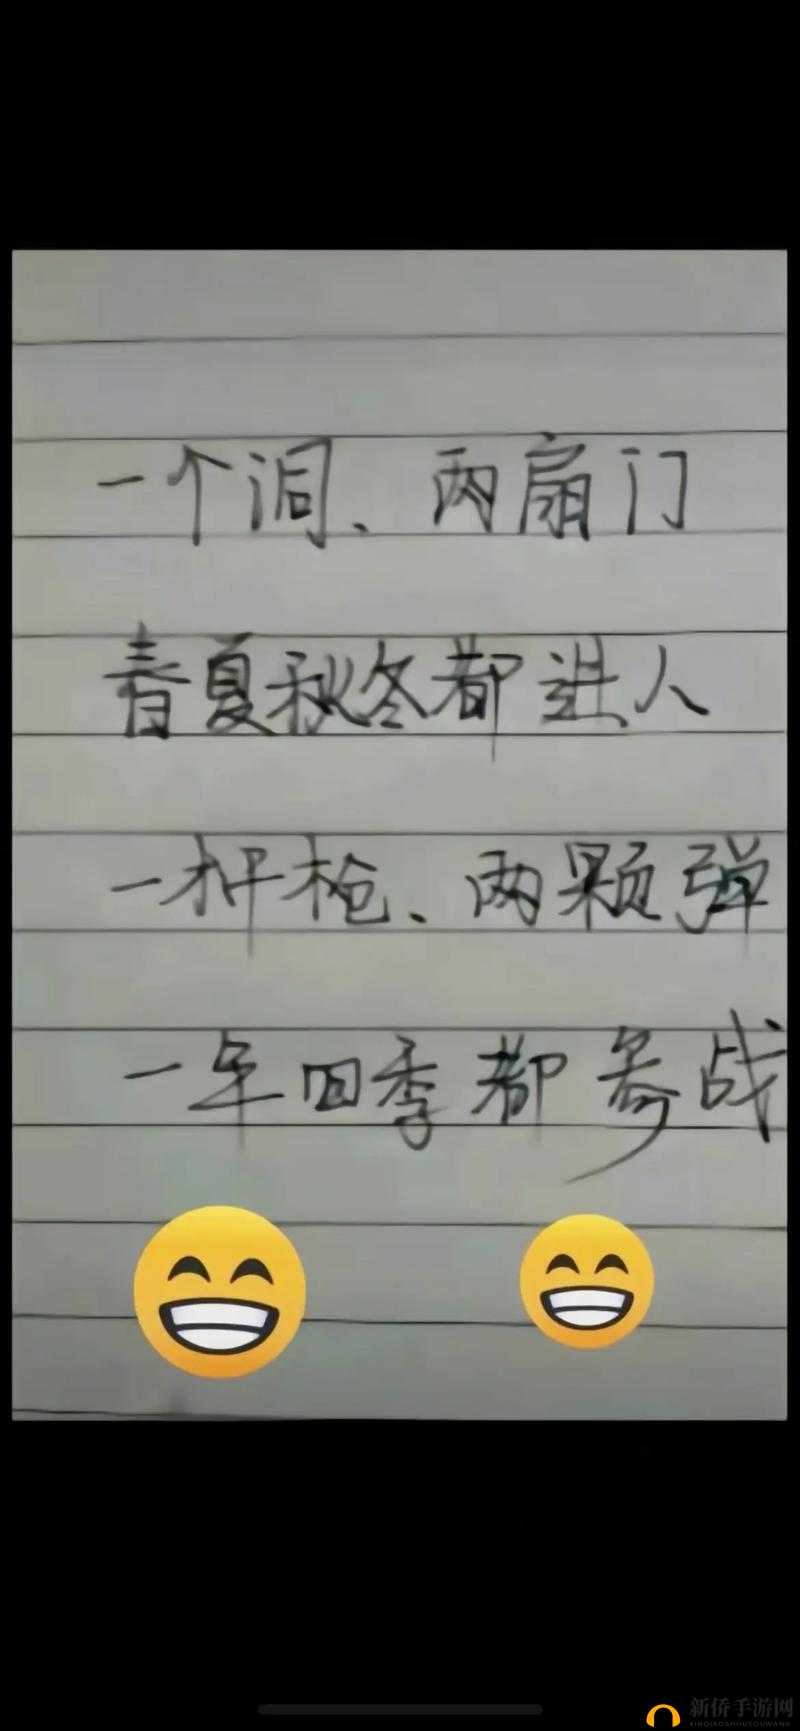 一个洞、两扇门
春夏秋冬都进人
一杆枪、两颗弹
一年四季都参战
新侨手游网
XINQIAOSHOUYOUWANG